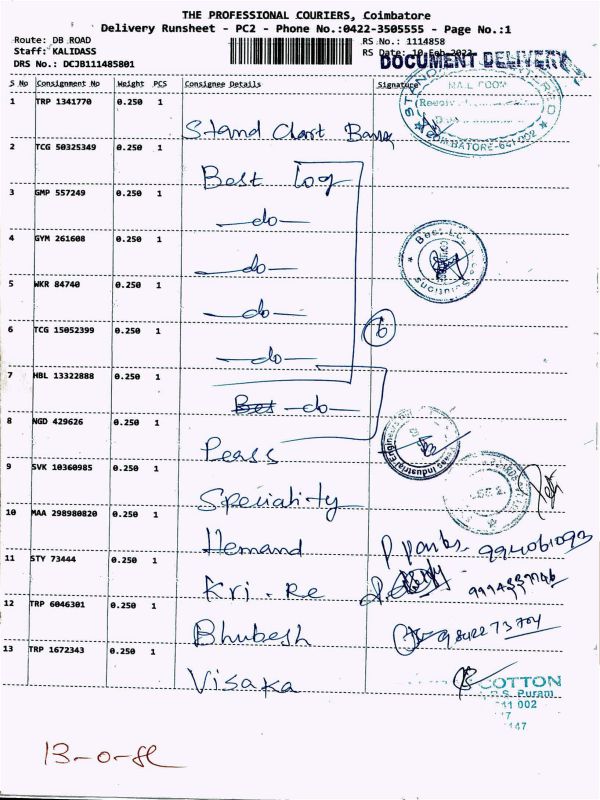 THE PROFESSIONAL COURIERS, Coimbatore
Delivery Runsheet - PC2 - Phone No.:0422-3505555 - Page No.:1
Route: DB ROAD
Staff: KALIDASS
DRS No.: DCJB111485801
RS No.: 1114858
RS Date: 10 Feb 2022
DOCUMENT DELIVERY
S No Consignment No Weight PCS Consignee Details Signature
MAIL ROOM
COIMBATORE-641 002
1 TRP 1341770 0.250 1 Stand Chart Bank
2 TCG 50325349 0.250 1 Best log
3 GMP 557249 0.250 1 —do—
4 GYM 261608 0.250 1 —do—
5 WKR 84740 0.250 1 —do—
6 TCG 15052399 0.250 1 —do—
6
7 HBL 13322888 0.250 1 —do—
8 NGD 429626 0.250 1 Peass
Industrial Engineers
9 SVK 10360985 0.250 1 Speciality
10 MAA 298980820 0.250 1 Hemand
11 STY 73444 0.250 1 Kri. Re
12 TRP 6046301 0.250 1 Bhubesh
9842273704
13 TRP 1672343 0.250 1 Visaka
COTTON
R.S. Puram
641 002
147
13-0-